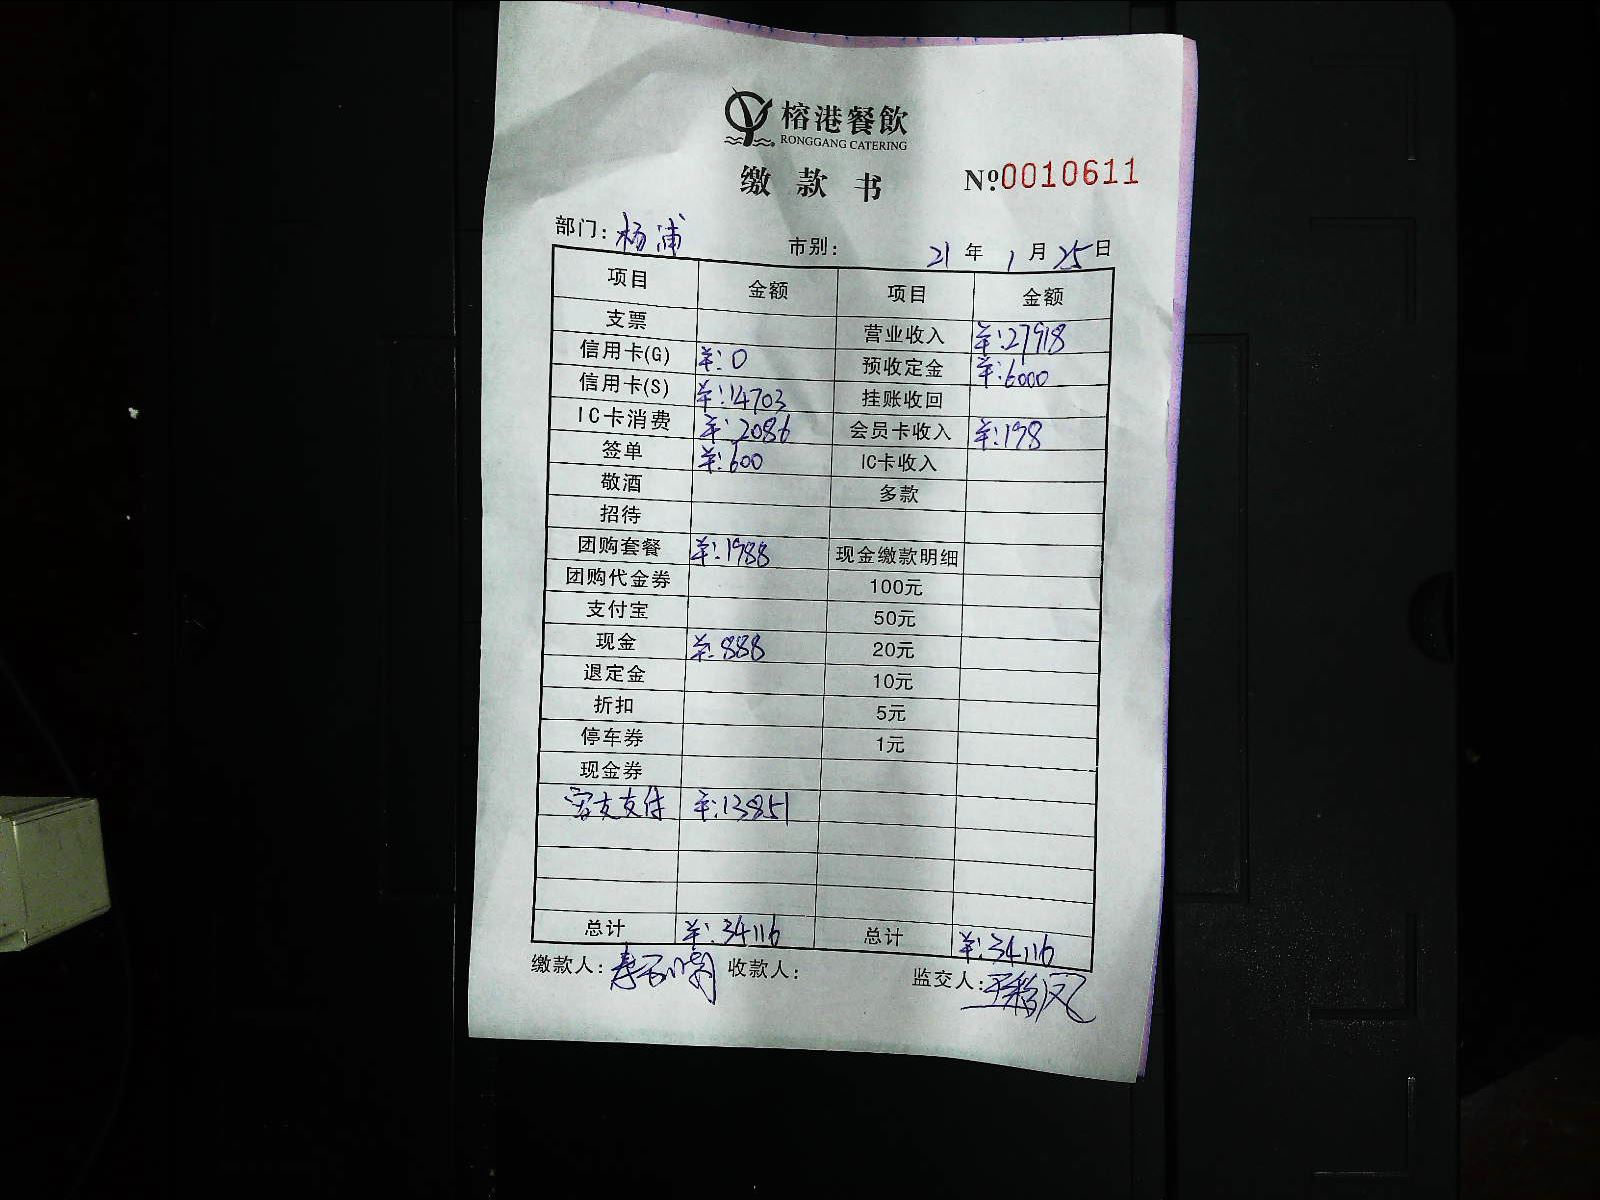 榕港餐飲
RONGGANG CATERING
缴款书 №0010611
部门: 杨浦 市别: 21年1月25日
项目 金额 项目 金额
支票 营业收入 ¥:27918
信用卡(G) ¥:0 预收定金 ¥:6000
信用卡(S) ¥:14703 挂账收回
IC卡消费 ¥:2086 会员卡收入 ¥:198
签单 ¥:600 IC卡收入
敬酒 多款
招待
团购套餐 ¥:1988 现金缴款明细
团购代金券 100元
支付宝 50元
现金 ¥:888 20元
退定金 10元
折扣 5元
停车券 1元
现金券
支付 ¥:13851
总计 ¥:34116 总计 ¥:34116
缴款人: 收款人: 监交人: